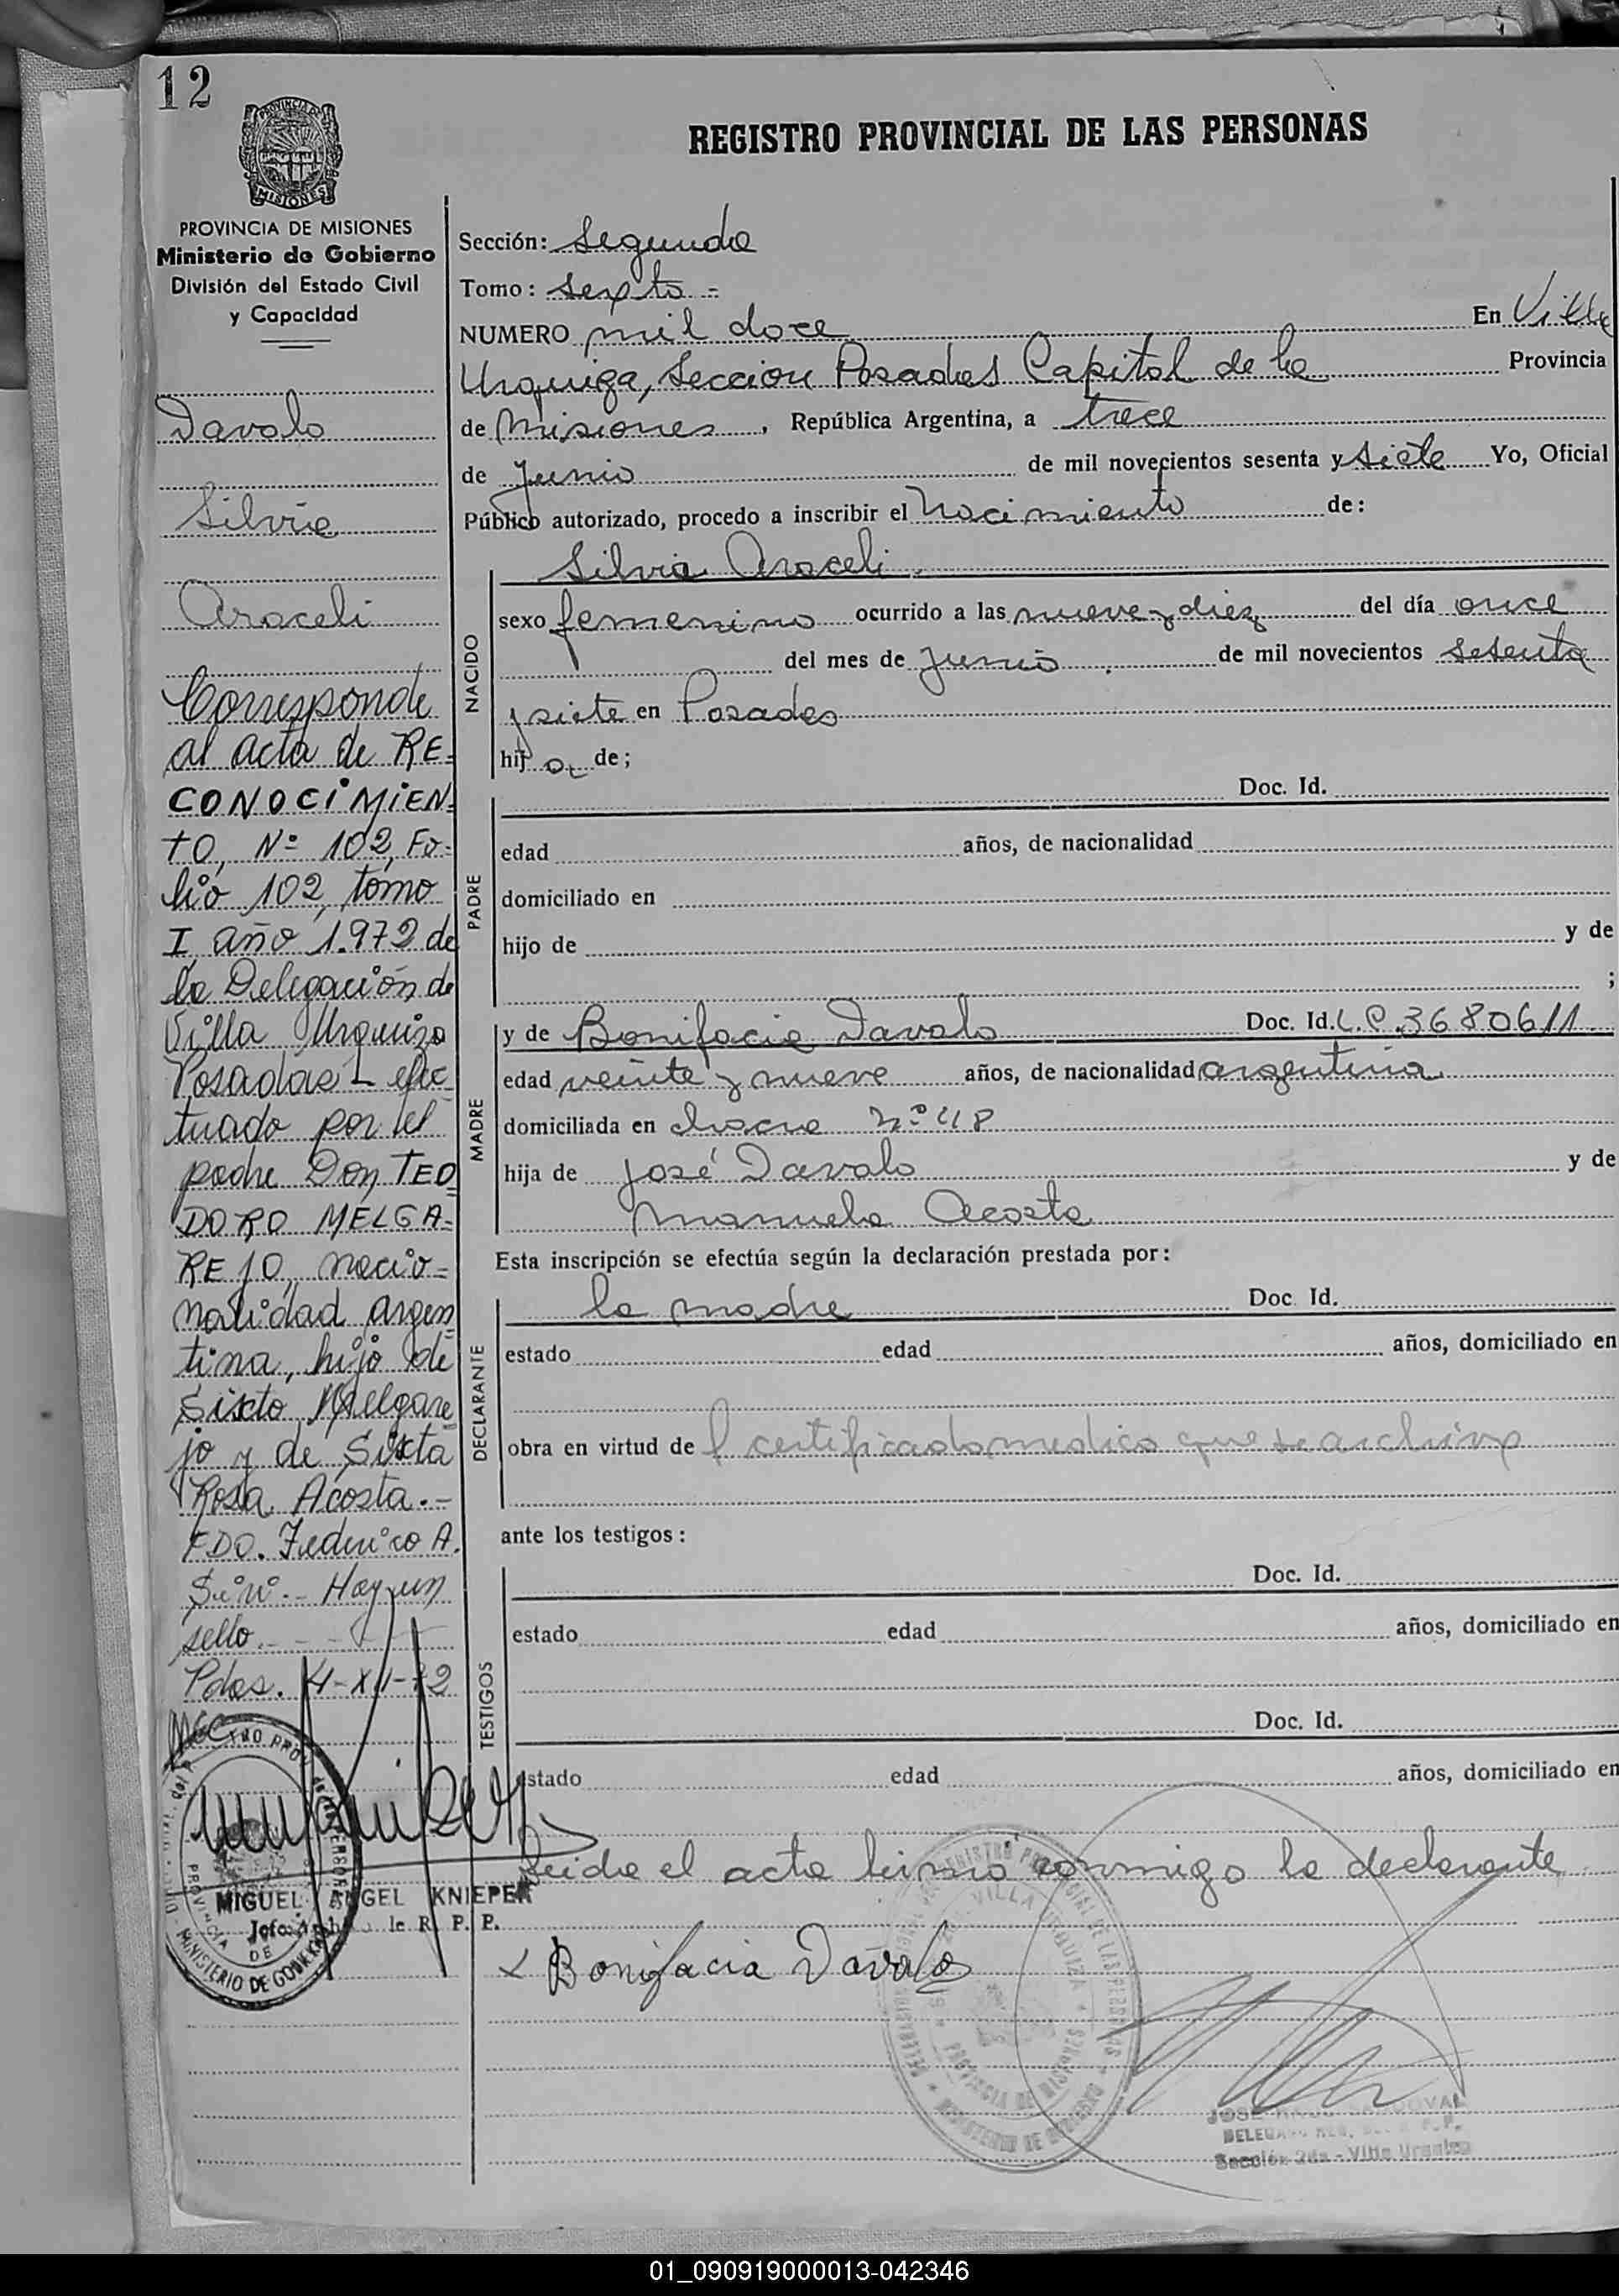 12
PROVINCIA DE
MISIONES
REGISTRO PROVINCIAL DE LAS PERSONAS
PROVINCIA DE MISIONES
Ministerio de Gobierno
División del Estado Civil
y Capacidad
Davalo
Silvia
Araceli
Corresponde
al acta de RE-
CONOCIMIEN-
TO, Nº 102, Fo-
lio 102, tomo
I año 1.972 de
la Delegación de
Villa Urquiza
Posadas - efec
tuado por el
padre Don TEO
DORO MELGA-
REJO, nacio-
nalidad argen
tina, hijo de
Sixto Melgare
jo y de Sixta
Rosa Acosta.-
FDO. Federico A.
Hay un
sello.- - -
Pdas. -XII-72
MIGUEL ANGEL KNIEPER
Sección: Segunda
Tomo: Sexto -
NUMERO mil doce En Villa
Urquiza, Seccion Posadas Capital de la Provincia
de Misiones, República Argentina, a trece
de Junio de mil novecientos sesenta y siete Yo, Oficial
Público autorizado, procedo a inscribir el Nacimiento de:
Silvia Araceli.
NACIDO
sexo femenino ocurrido a las nueve y diez del día once
del mes de Junio de mil novecientos sesenta
y siete en Posadas
hij a de;
Doc. Id.
PADRE
edad años, de nacionalidad
domiciliado en
hijo de y de
;
MADRE
y de Bonifacia Davalo Doc. Id. L.C. 3680611
edad veinte y nueve años, de nacionalidad argentina
domiciliada en chacra Nº 48
hija de José Davalo y de
Manuela Acosta
Esta inscripción se efectúa según la declaración prestada por:
DECLARANTE
la madre Doc. Id.
estado edad años, domiciliado en
obra en virtud de l certificado medico que se archiva
ante los testigos:
TESTIGOS
Doc. Id.
estado edad años, domiciliado en
Doc. Id.
estado edad años, domiciliado en
Leida el acta firma conmigo la declarante
x Bonifacia Davalo
Sección 2da - Villa Urquiza
01_090919000013-042346